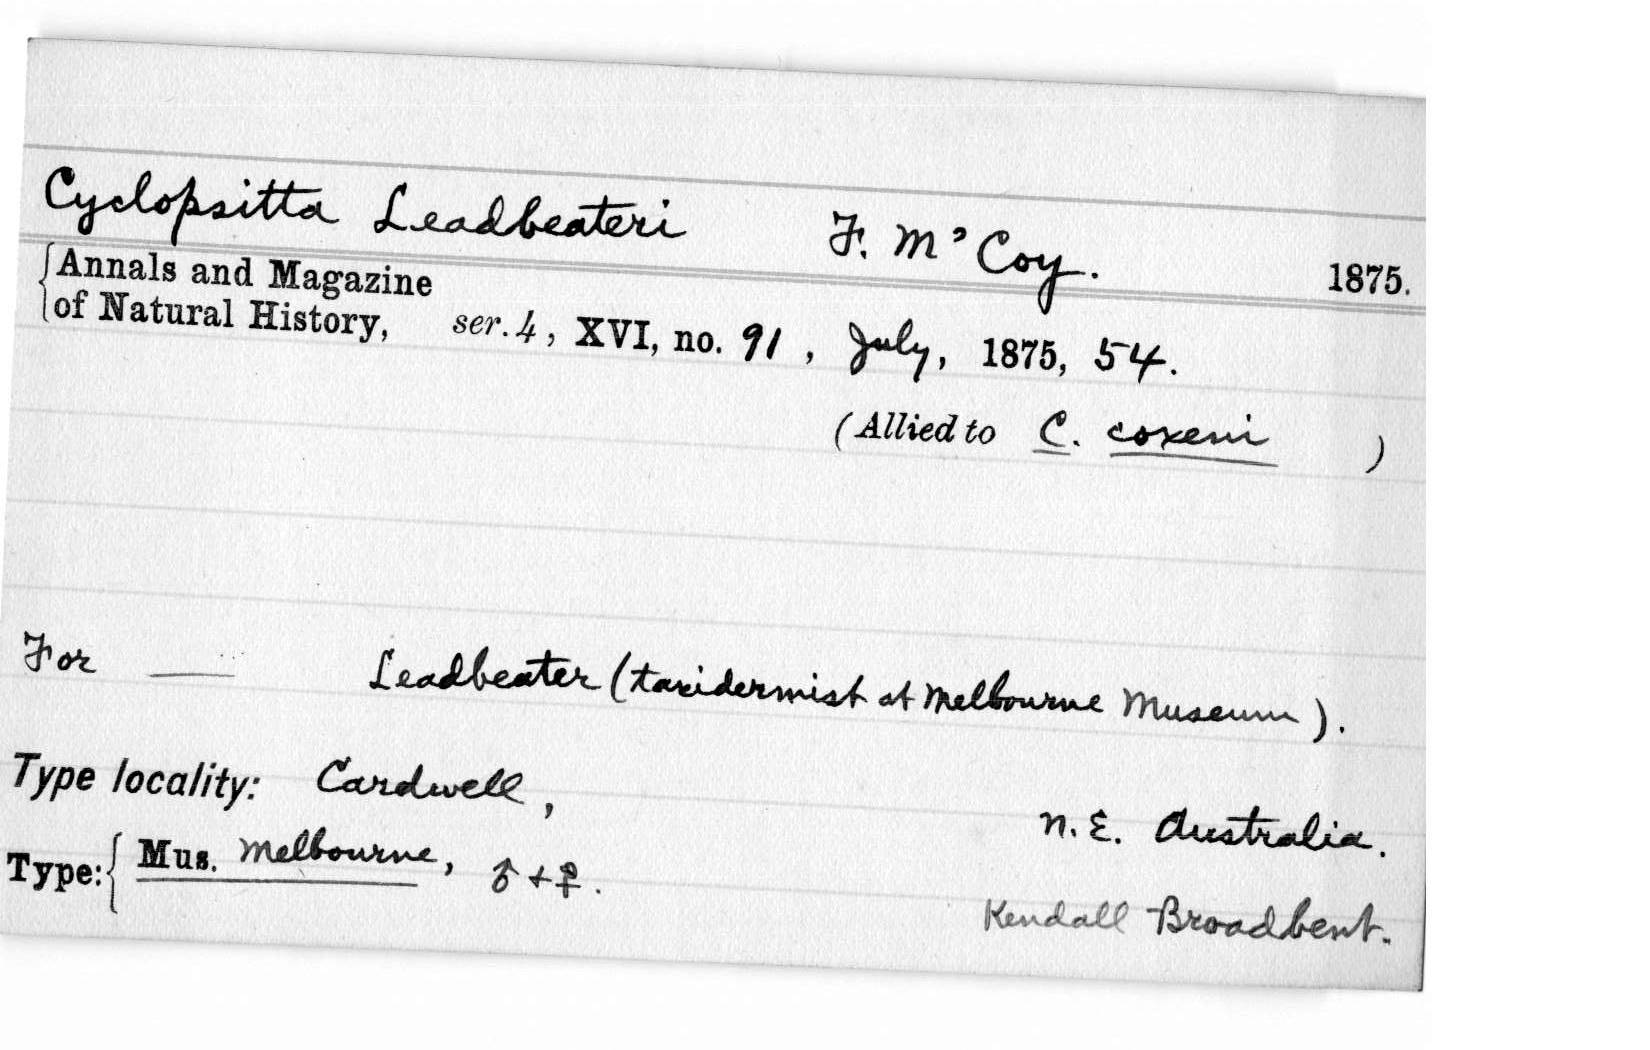 Cyclopsitta Leadbeateri F. McCoy. 1875.
Annals and Magazine
of Natural History, ser. 4, XVI, no. 91, July, 1875, 54.
(Allied to C. coxeni )
For — Leadbeater (taxidermist at Melbourne Museum).
Type locality: Cardwell, N.E. Australia.
Type: Mus. Melbourne, ♂ + ♀.
Kendall Broadbent.